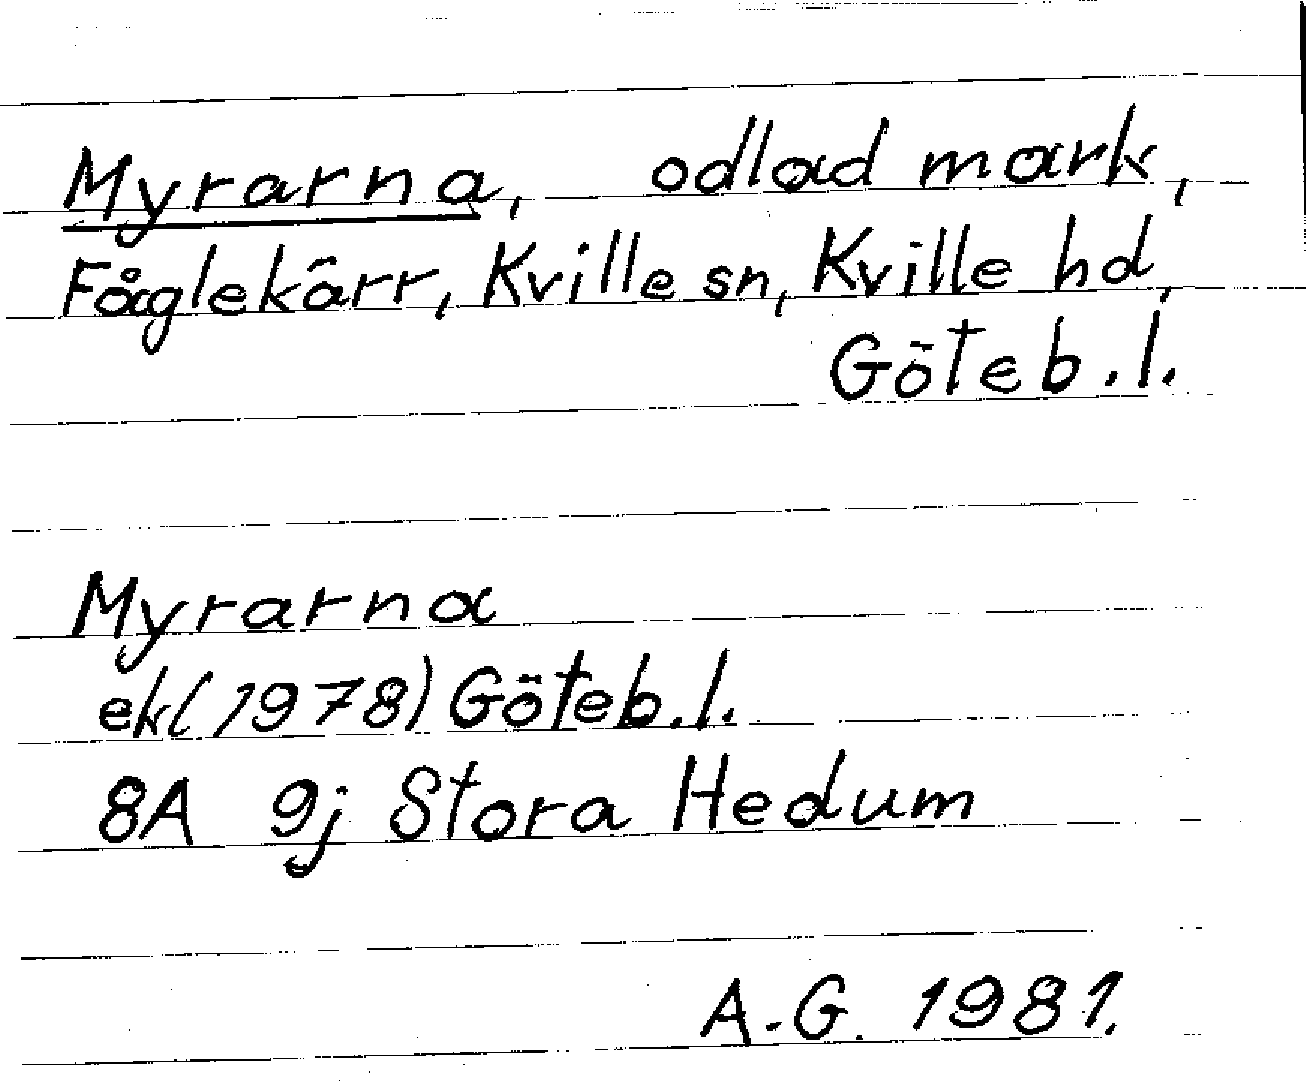 Myrarna, odlad mark,
Fåglekärr, Kville sn, Kville hd,
Göteb.l.
Myrarna
ekl(1978) Göteb.l.
8A 9j Stora Hedum
A.G. 1981.